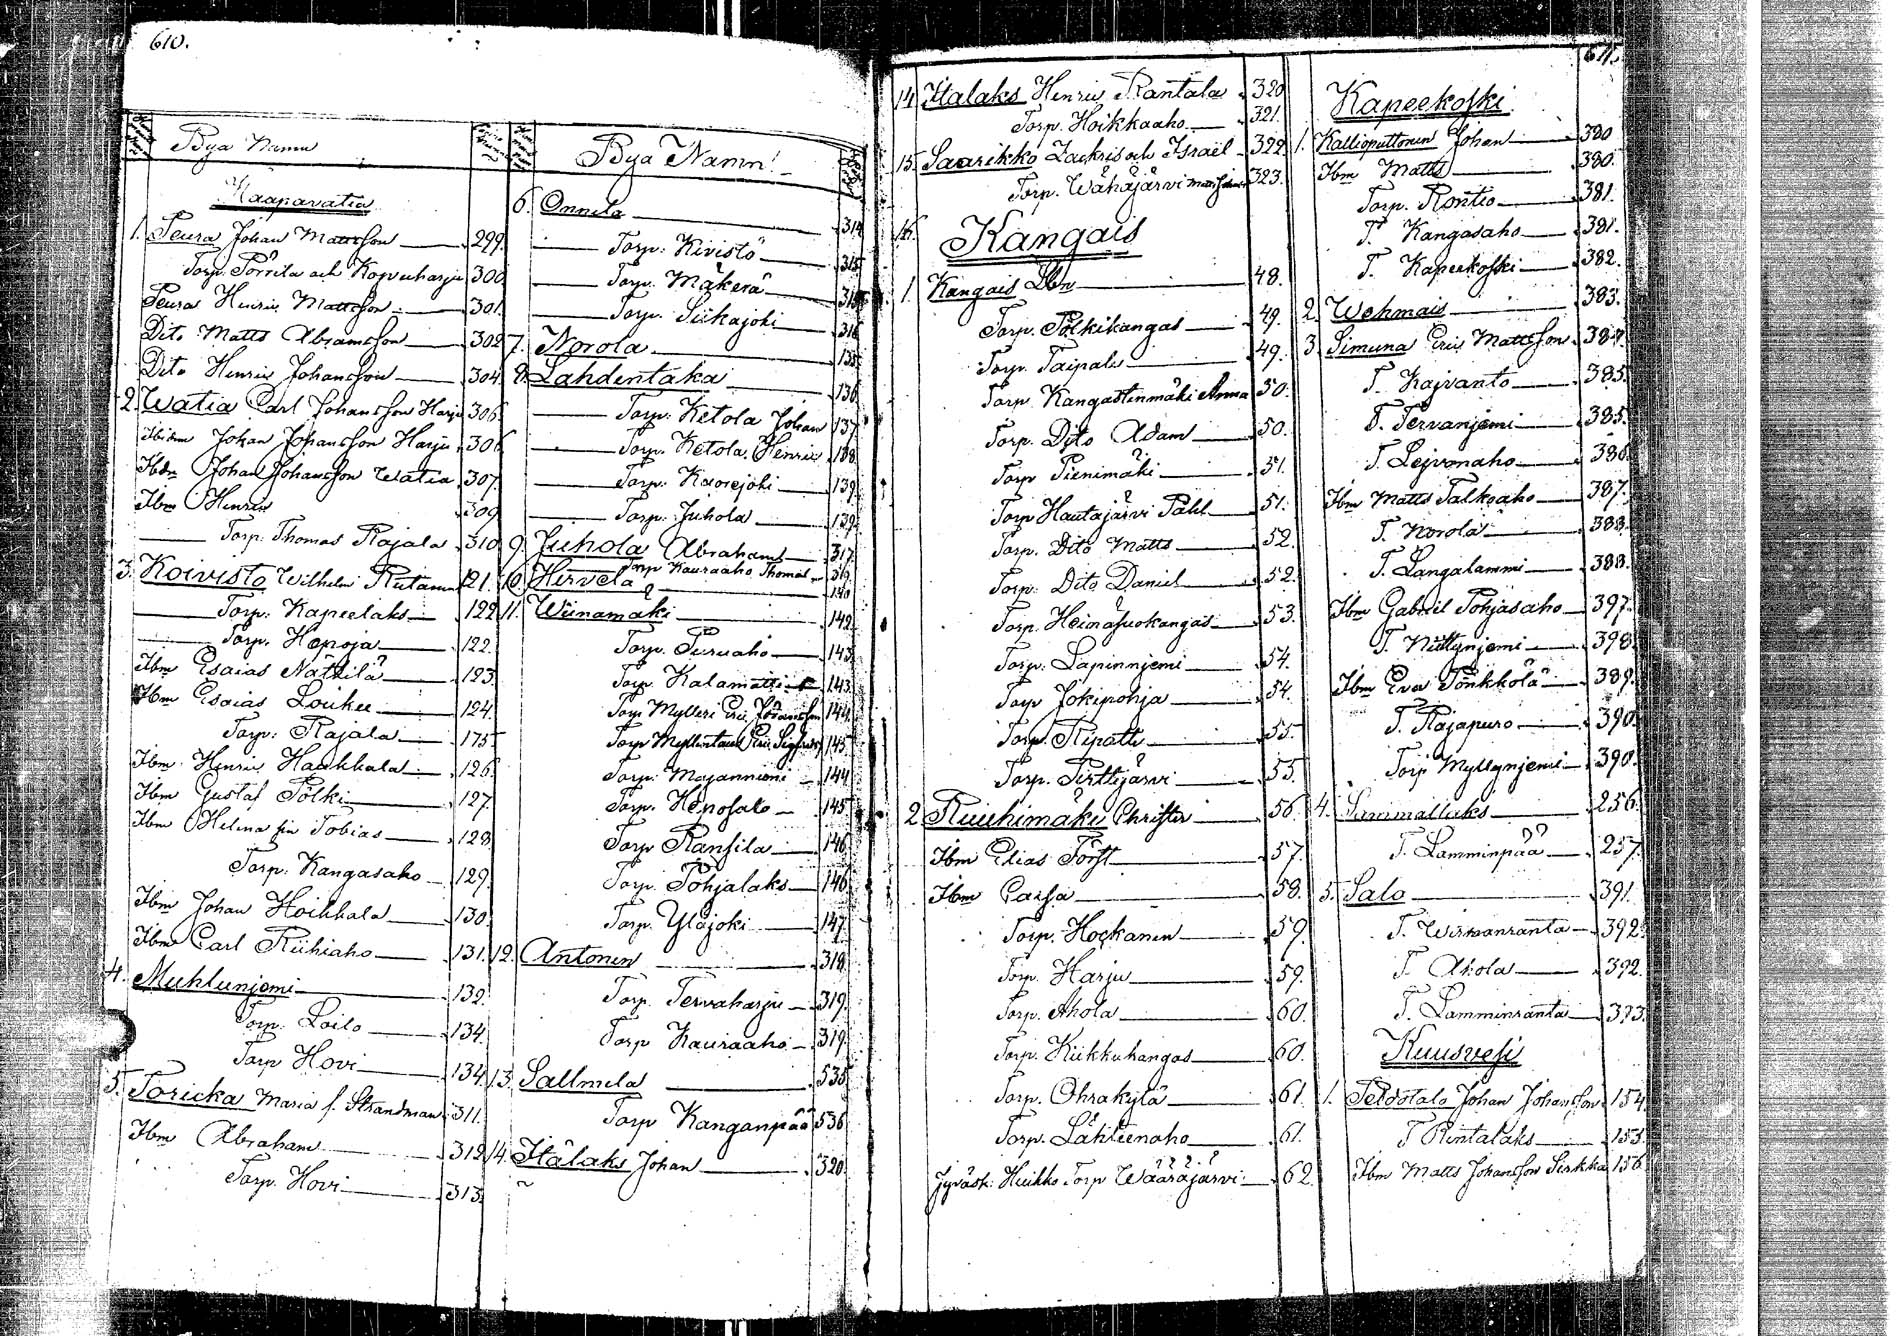 610.
Bya Namn
Haapavatia
1. Peura Johan Mattsson 299.
Torp. Pörrilä och Kopvuharju 300.
Peura Henric Mattsson 301.
Dito Matts Abramsson 302
Dito Henric Johansson 304.
2. Watia Carl Johansson Harju 306.
Ibidm Johan Johansson Harju 306.
Ibdm Johan Johansson Watia 307.
Ibm Henric 309
Torp. Thomas Rajala 310
3. Koivisto Wilhelm Rutanen 121.
Torp: Kapeelaks 122
Torp. Hepoja 122.
Ibm Esaias Nattilä 123.
Ibm Esaias Loukee 124.
Torp: Rajala 175.
Ibm Henric Haukkala 126.
Ibm Gustaf Pölki 127.
Ibm Helena fru Tobias 128
Torp: Kangasaho 129.
Ibm Johan Hoikkala 130.
Ibm Carl Riihiaho 131.
4. Muhlunjemi 132.
Torp: Loilo 134.
Torp Hovi 134.
5. Toricka Maria f. Strandman 311.
Ibm Abraham 312
Torp. Hovi 313.
Bya Namn
6. Onnila 314
Torp: Kivistö 315.
Torp. Mäkerä 315
Torp. Siikajoki 316
7. Norola 135.
8. Lahdentaka 136
Torp: Ketola Johan 137
Torp. Ketola Henric 138
Torp: Kaorejoki 139.
Torp. Juhola 139.
9. Juhola Abraham 317.
Torp Kauraaho Thomas 319.
10. Hirvelä 140
11. Wiinamäki 142.
Torp. Puruaho 143.
Torp. Kalamatti 143.
Torp Mylleri Eric Johansson 144.
Torp Myllintaus Eric Sigfrids 145
Torp: Majanniemi 144
Torp. Heposalo 145
Torp Ransila 146
Torp. Pohjalaks 146
Torp. Yläjoki 147.
12. Antonen 318
Torp. Tervaharju 319.
Torp Kauraaho 319.
13. Sallmela 535
Torp Kanganpää 536
14. Itälaks Johan 320.
611.
14 Italaks Henric Rantala 320
Torp. Hoikkaaho 321.
15. Saarikko Zachris och Israël 322
Torp. Wähäjärvi 323.
16.
Kangais
1. Kangais Lbn 48.
Torp. Pölkikangas 49.
Torp. Taipale 49.
Torp. Kangastinmäki Anna 50.
Torp. Dito Adam 50.
Torp Pienimäki 51.
Torp Hautajärvi Påhl 51.
Torp. Dito Matts 52.
Torp: Dito Daniel 52.
Torp. Heinäsuokangas 53.
Torp: Lapinnjemi 54.
Torp Jokipohja 54.
Torp. Ripatti 55.
Torp. Perttijärvi 55.
2 Ruuhimäki Christer 56.
Ibm Elias Torft 57.
Ibm Caisa 58.
Torp. Hockanen 59.
Torp. Harju 59.
Torp. Ahola 60.
Torp. Kiikkukangas 60.
Torp. Ohrakylä 61.
Torp. Lähteenaho 61.
Jyväsk: Huikko Torp Wääräjärvi 62.
Kapeekoski
1. Kallioputtonen Johan 380
Ibm Matts 380.
Torp. Rontio 381.
T. Kangasaho 381.
T. Kapeekoski 382.
2. Wehmais 383.
3. Simuna Eric Mattsson 384.
T. Kajvanto 385.
T. Tervanjemi 385.
T. Lejvonaho 386.
Ibm Matts Talkoaho 387.
T. Norola 388.
T. Langalammi 388.
Ibm Gabriel Pohjasaho 397.
T. Niittynjemi 398.
Ibm Eva Pönkkölä 389.
T Rajapuro 390.
Torp Myllynjemi 390.
4. Saarimallaks 256.
T. Lamminpää 257.
5. Salo 391.
T. Wirmanranta 392.
T. Ahola 392.
T. Lamminranta 393.
Kuusvesi
1. Peldotalo Johan Johansson 154.
T Rintalaks 155.
Ibm Matts Johansson Sirkka 156.